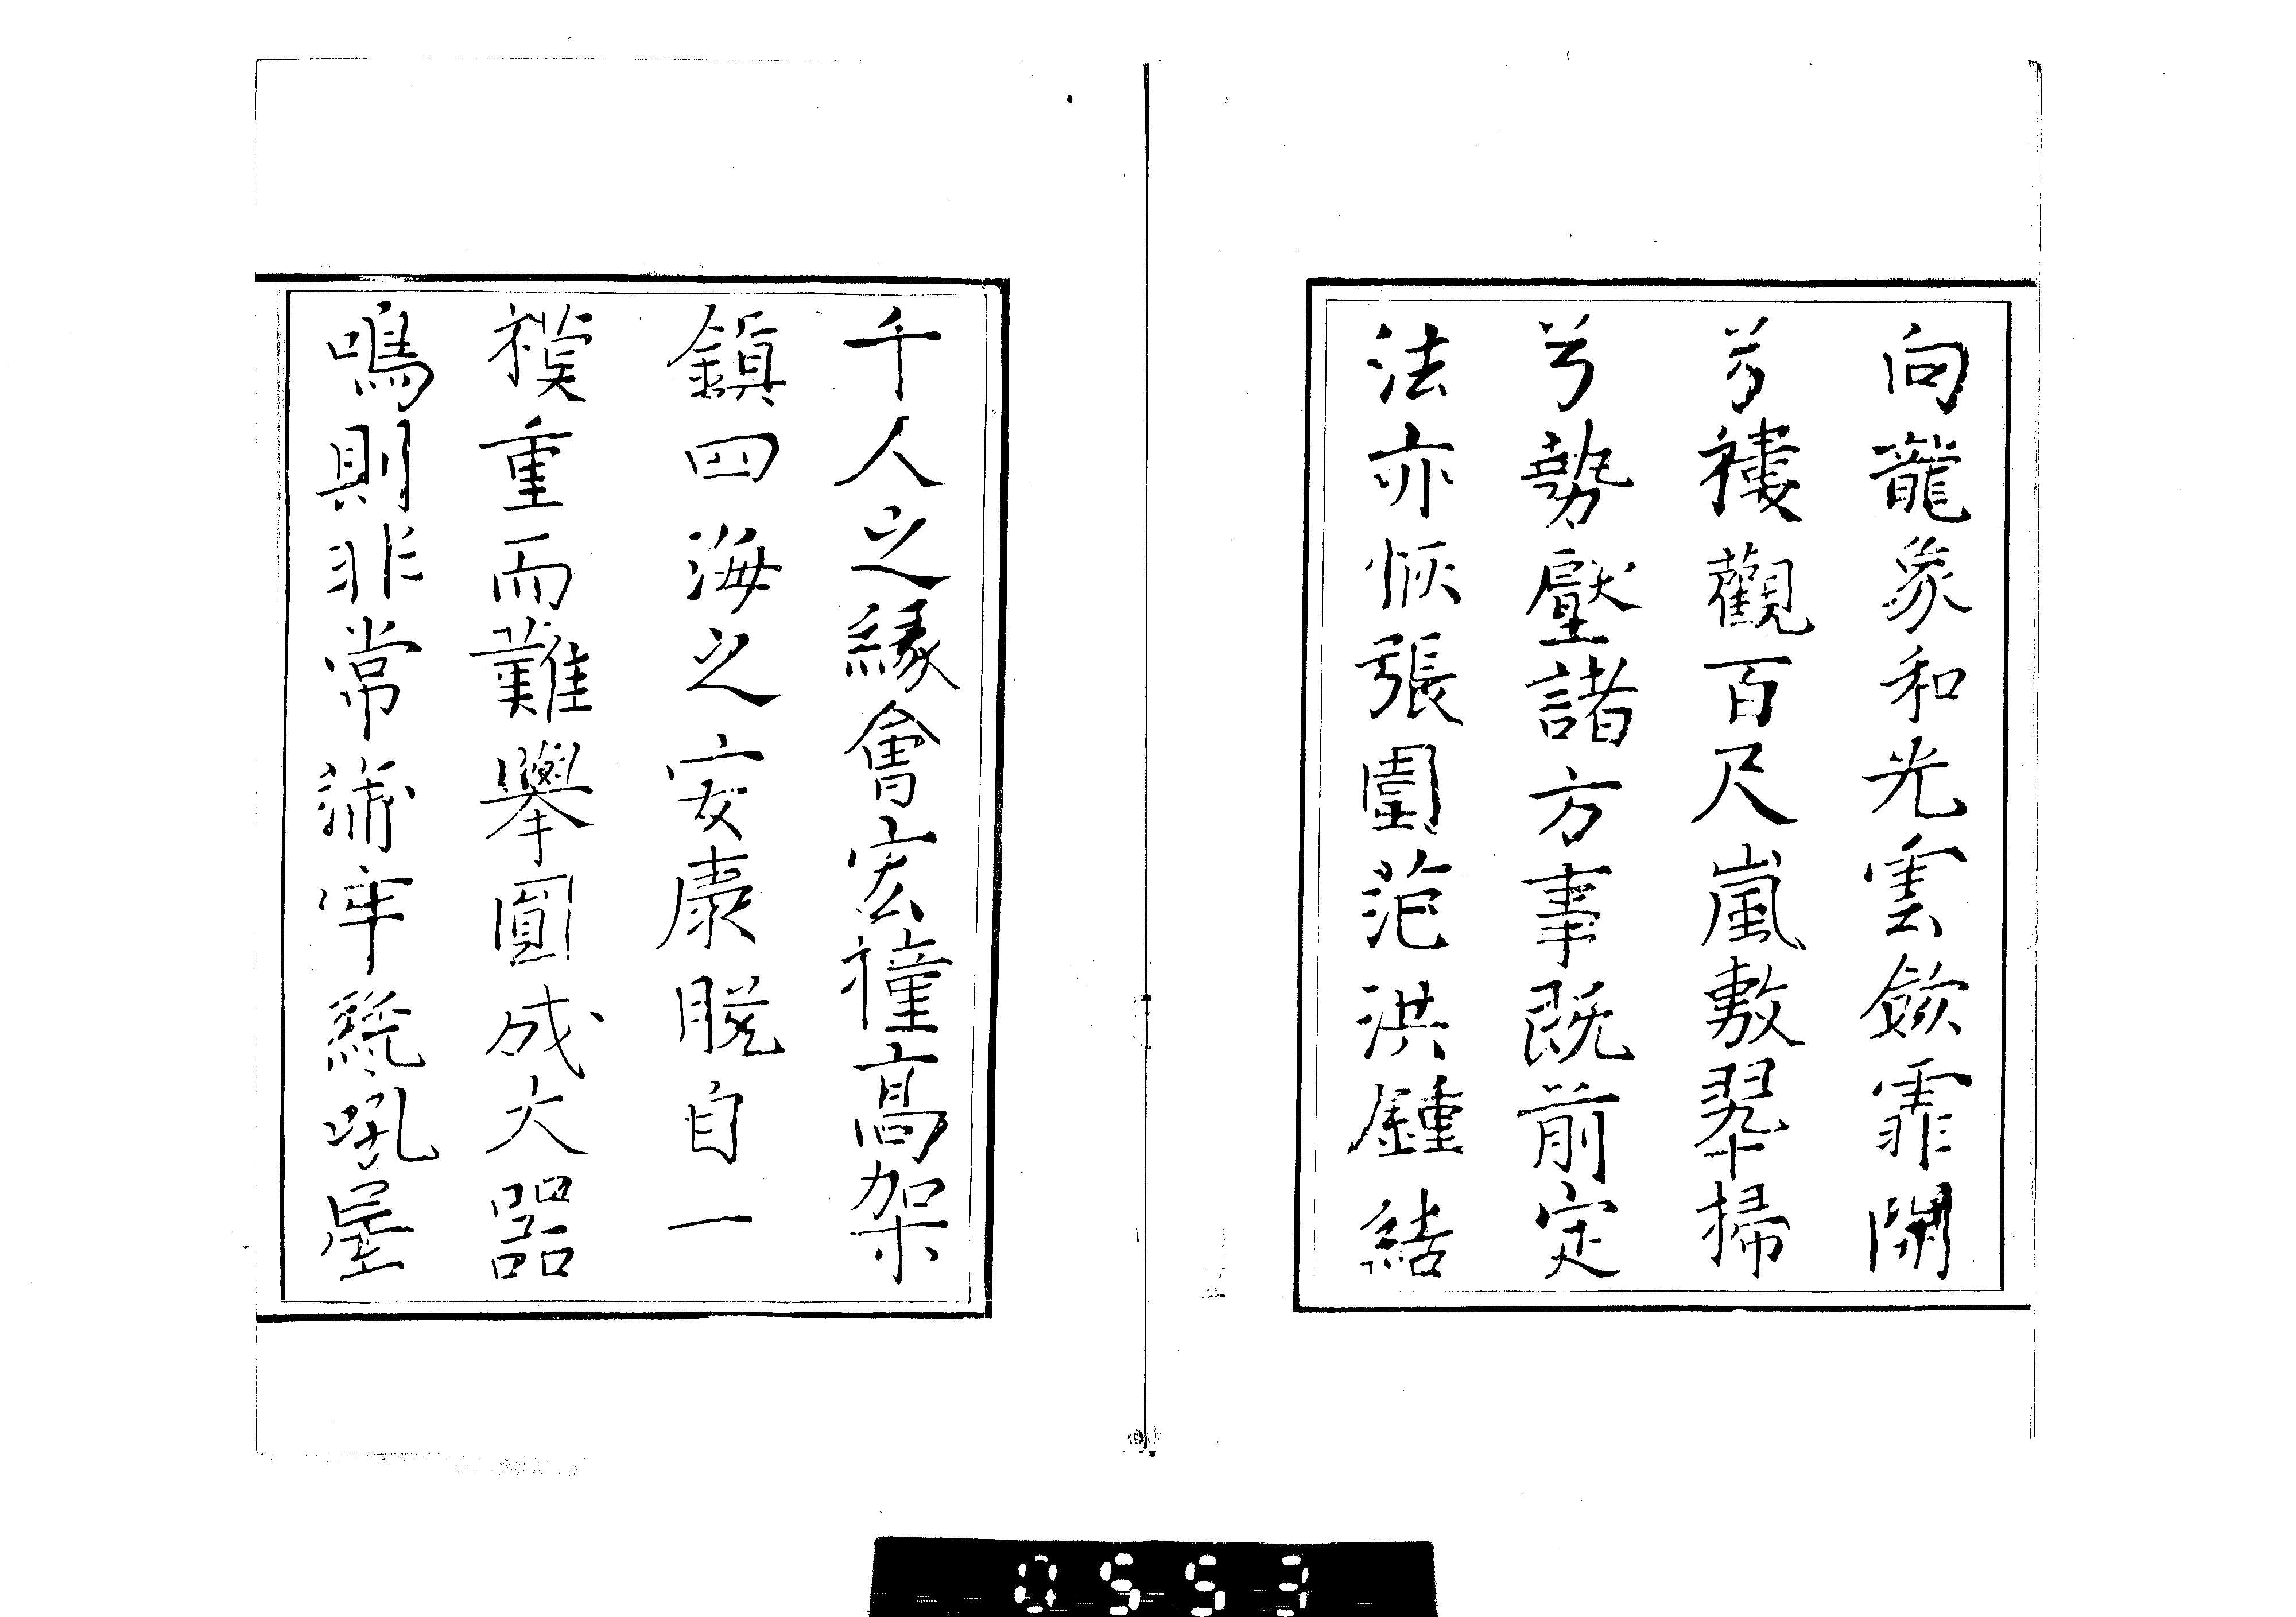 向龍象和光雲斂霏開
兮樓觀百尺嵐敷翠掃
兮勢壓諸方事既前定
法亦恢張園范洪鍾結
千人之緣會宏橦高架
鎮四海之安康脫自一
模重而難舉圓成大器
鳴則非常蒲牢纔吼星
0553